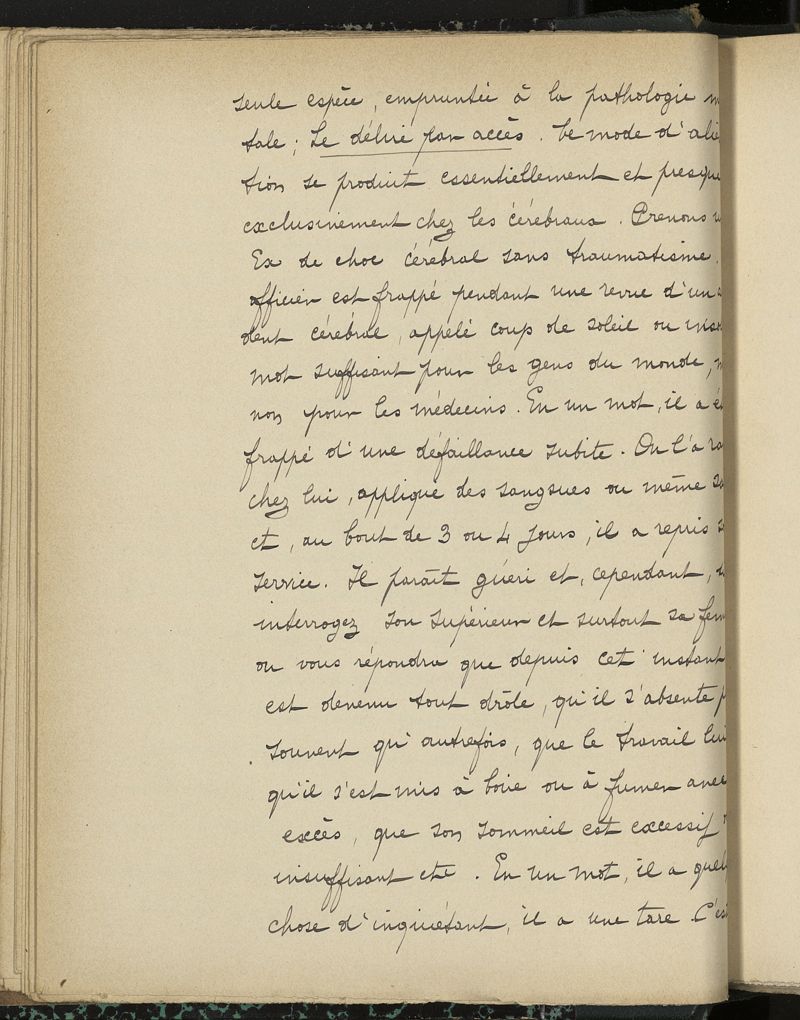 seule espèce, empruntée à la pathologie m
tale ; Le délire par accès. Ce mode d'alié
tion se produit essentiellement et presque
exclusivement chez les cérébraux. Prenons u
Ex de choc cérébral sans traumatisme.
officier est frappé pendant une revue d'un a
dent cérébral, appélé coup de soleil ou inso
mot suffisant pour les gens du monde, m
non pour les médecins. En un mot, il a é
frappé d'une défaillance subite. On l'a ra
chez lui, appliqué des sangsues ou même sa
et, au bout de 3 ou 4 jours, il a repris s
service. Il paraît guéri et, cependant,
interrogez son supérieur et surtout sa fem
on vous répondra que depuis cet instant
est devenu tout drôle, qu'il s'absente p
souvent qu'autrefois, que le travail lui
qu'il s'est mis à boire ou à fumer avec
excès, que son sommeil est excessif
insuffisant etc. En un mot, il a quel
chose d'inquiétant, il a une tare. C'es